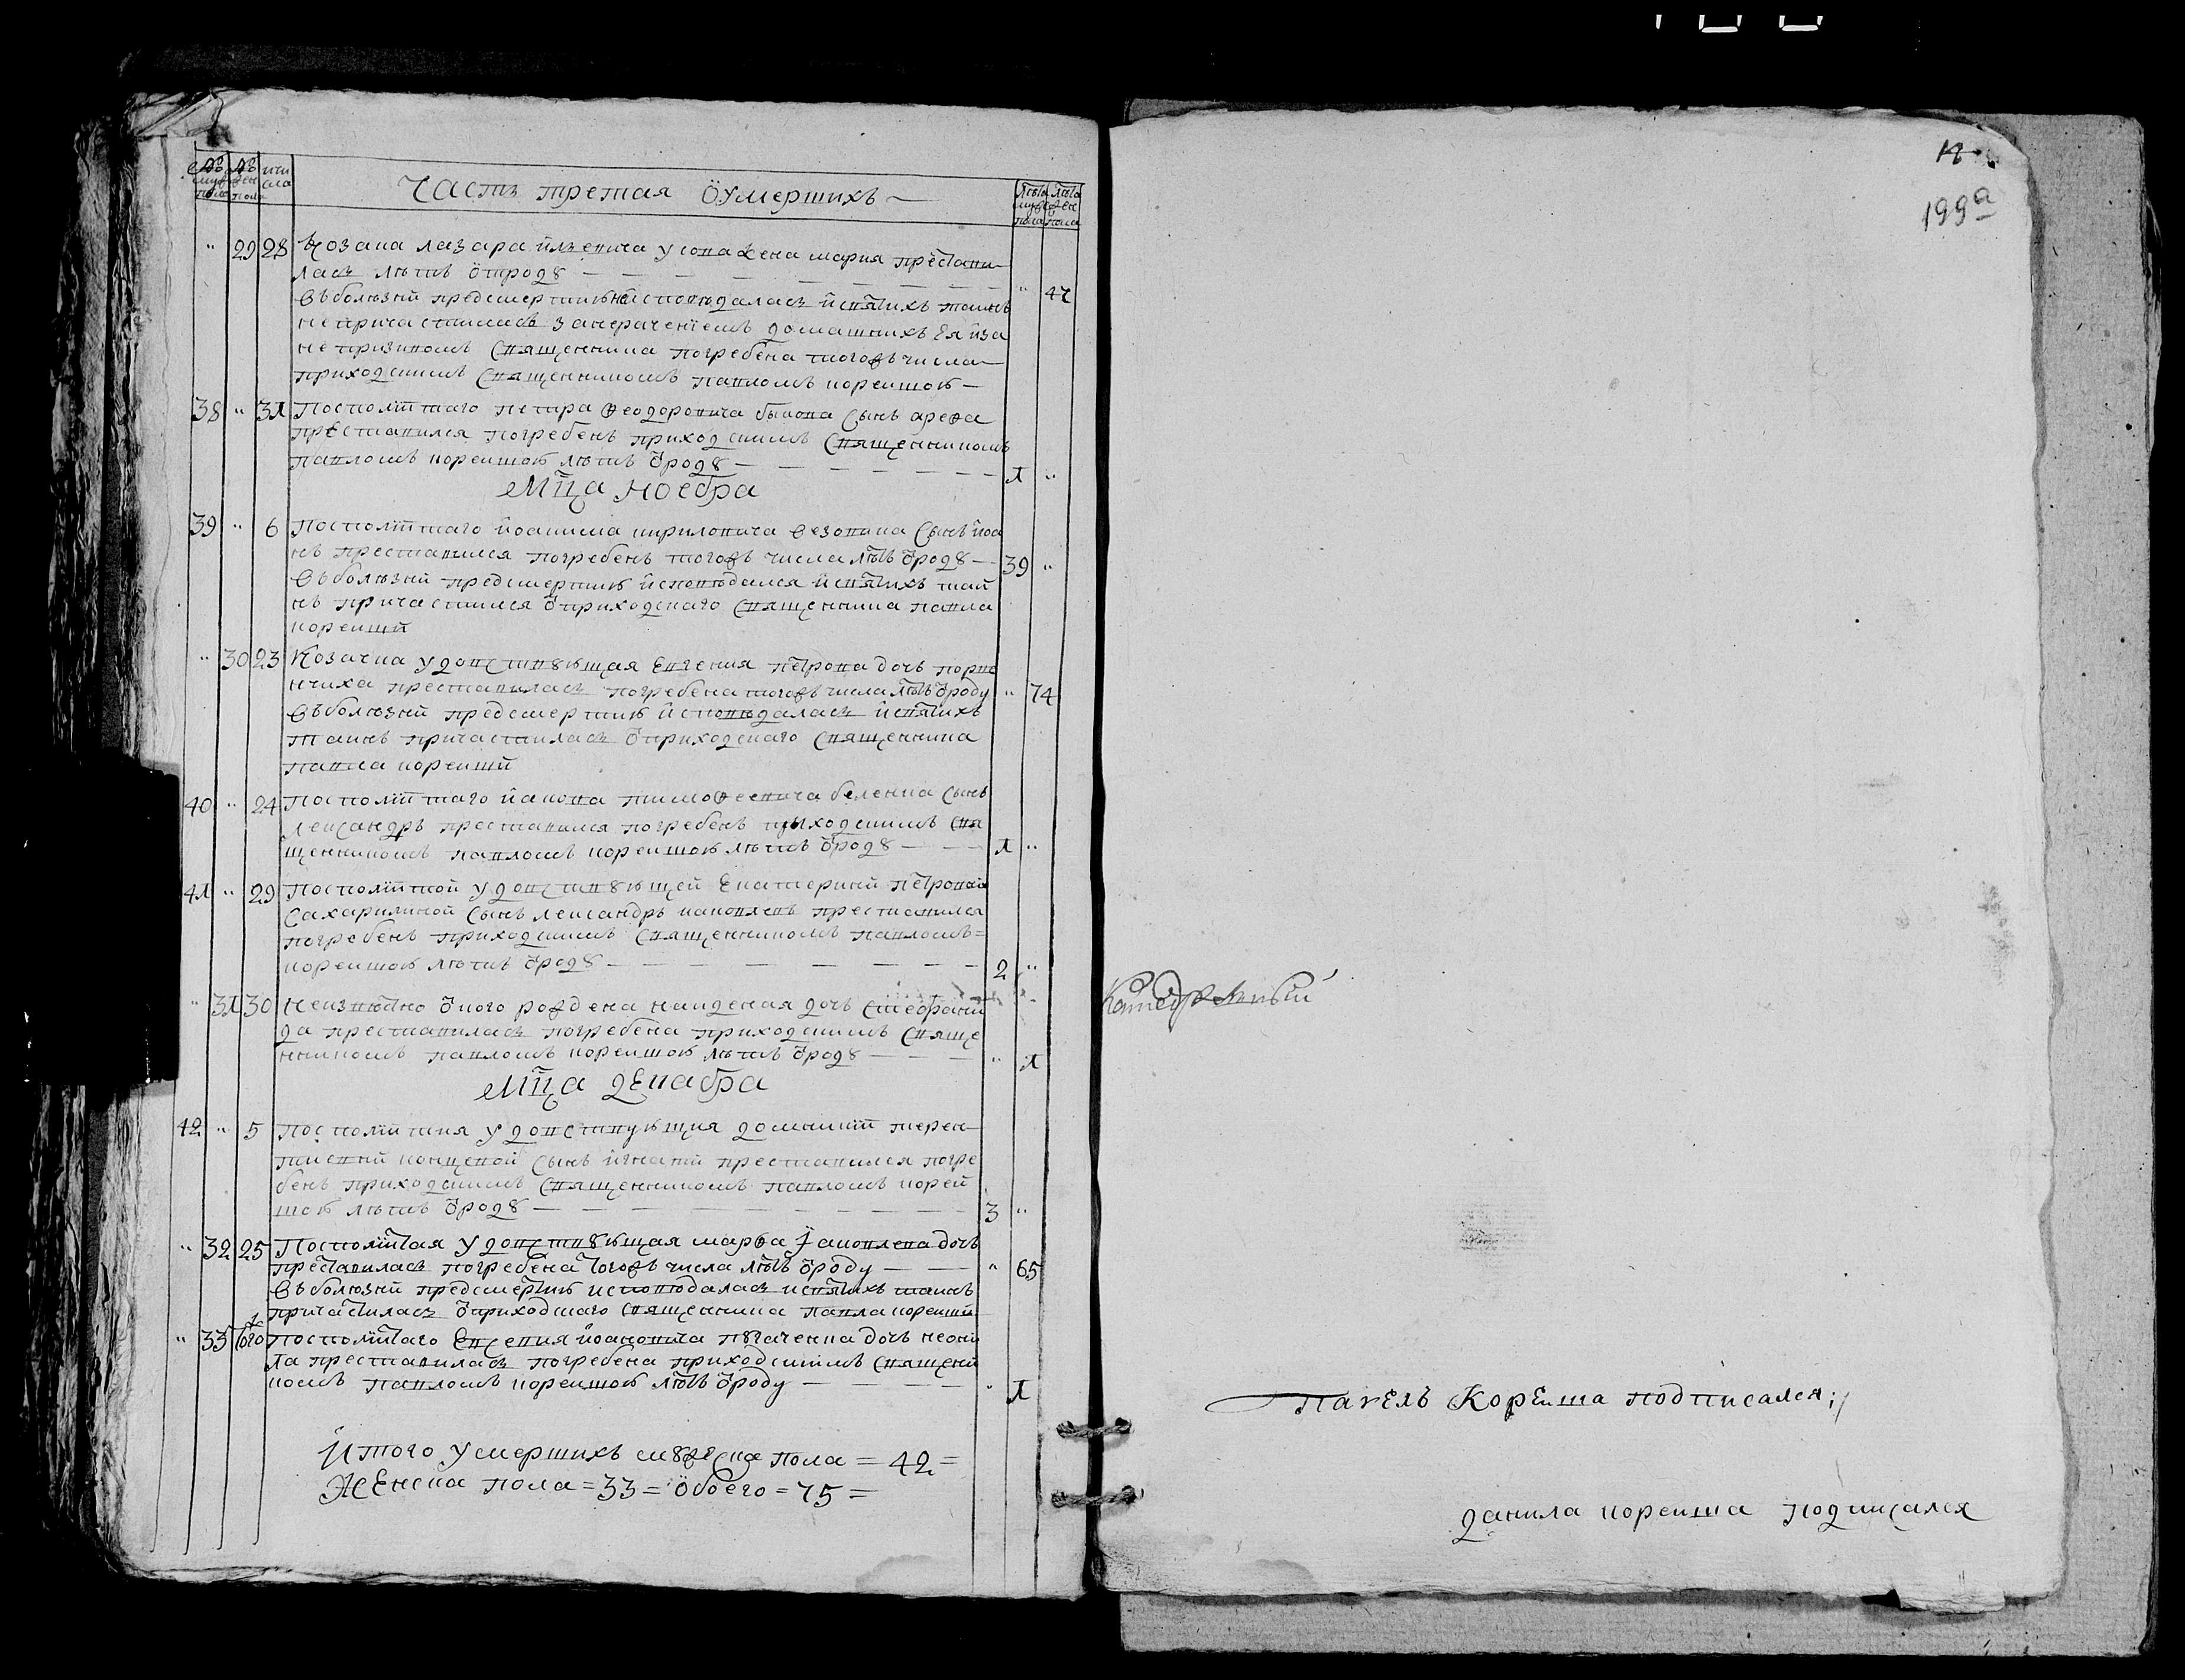 Часть третая о умершихъ
" 29 28 Козака лазара илъевича усова жена мария престави-
ласъ лѣтъ о̃троду 47
въ болѣзни предсмертнѣй исповѣдаласъ и святихъ таинъ
не причастиласъ занераченіемъ домашнихъ ея иза
не призивомъ священника погребена тогожъ числа
приходскимъ священникомъ павломъ корейшою
38 " 31 Посполитаго петра ѳеодоровича бикова сынъареѳа
преставился погребенъ приходскимъ священникомъ
павломъ корейшою лѣтъ о̃роду 1 "
Мц҃а ноебра
39 " 6 Посполитаго иоакима кириловича сынъ иоа
нъ преставился погребенъ тогожъ числа лѣтъ о̃роду 39 "
въ болѣзни предсмертнѣ исповѣдался и святихъ тай
нъ причастился о̃приходскаго священника павла
корейши
" 30 23 Козачка удовствующая Евгения петрова дочь
нчиха преставиласъ погребена тогожъ числа лѣтъ о̃роду " 74
въ болѣзни предсмертнѣ исповѣдаласъ и святихъ
таинъ причастиласъ о̃приходскаго священника
павла корейши
40 " 24 Посполитаго иакова тимоѳеевича беленка сынъ
леѯандръ преставился погребенъ прыходскимъ свя
щенникомъ павломъ корейшою лѣтъ о̃роду 1 "
41 " 29 Посполитой удовствующей Екатерини петровой
Сахарилиной сынъ леѯандръ яковлевъ преставился
погребенъ приходскимъ священникомъ павломъ=
корейшою лѣтъ о̃роду 2 "
" 31 30 Неизвѣстно о̃кого рождена найденая дочь стефани
да преставиласъ погребена приходскимъ свяще
нникомъ павломъ корейшою лѣтъ о̃роду " 1
Мц҃а декабра
42 " 5 Посполития удовствующия домникии терен-
тиевни сынъ игнатий преставился погре
бенъ приходскимъ священникомъ павломъ корей
шою лѣтъ о̃роду 3 "
" 32 25 Посполитая удовствующая марѳа яковлева дочь
преставиласъ погребена тогожъ числа лѣтъ о̃роду " 65
въ болѣзни предсмертнѣ исповѣдаласъ исвятихъ таинъ
причастиласъ о̃приходскаго священника павла корейши
" 33 того Посполитаго Евсевия иоановича дочь неони
ла преставиласъ погребена приходскимъ священи
комъ павломъ корейшою лѣтъ о̃роду " 1
Итого умершихъ мужеска пола = 42 =
Женска пола = 33 = обоего = 75 =
199а
Павелъ Корейша подписался
данила корейша подписался